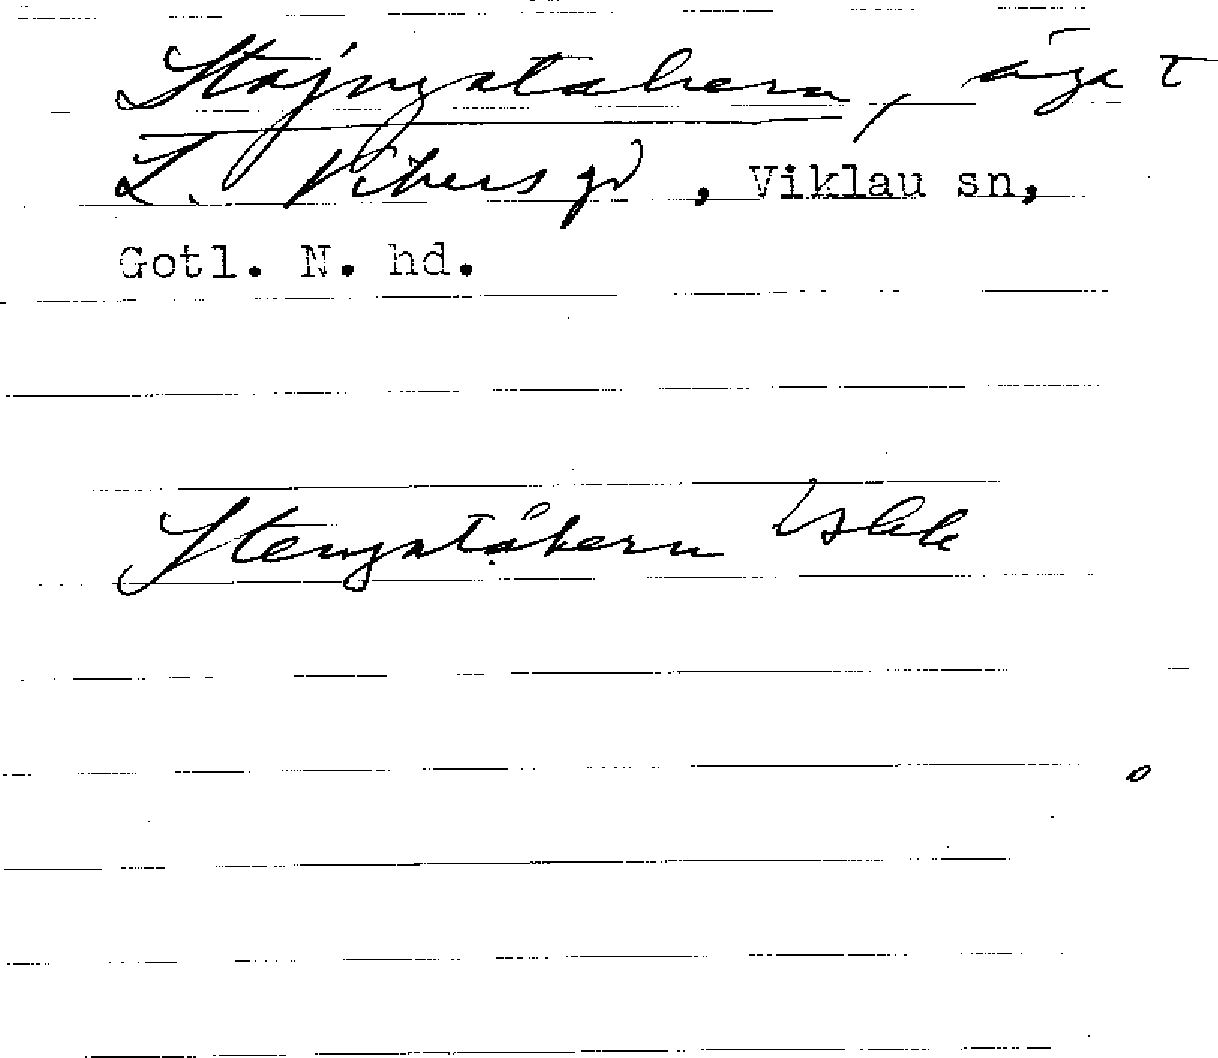 Stajngatakern, äga t
L. Vibers gd, Viklau sn,
Gotl. N. hd.
Stengatåkern